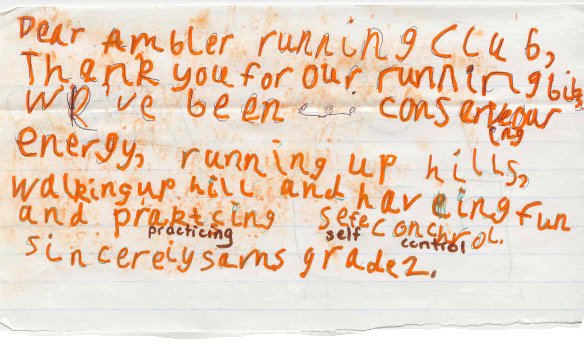 Dear Ambler running Club,
Thank you for our running bibs
We've been conserveing our
energy, running up hills,
walking up hill and having fun
and prakticing sefe conchrol.
practicing self control
sincereiy sams grade 2.